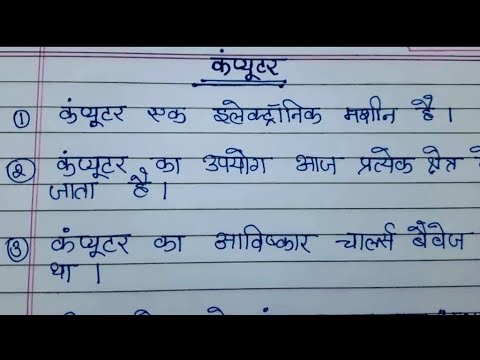 कंप्यूटर
① कंप्यूटर एक इलेक्ट्रॉनिक मशीन है ।
② कंप्यूटर का उपयोग आज प्रत्येक क्षेत्र
जाता है ।
③ कंप्यूटर का आविष्कार चार्ल्स बैवेज
था ।